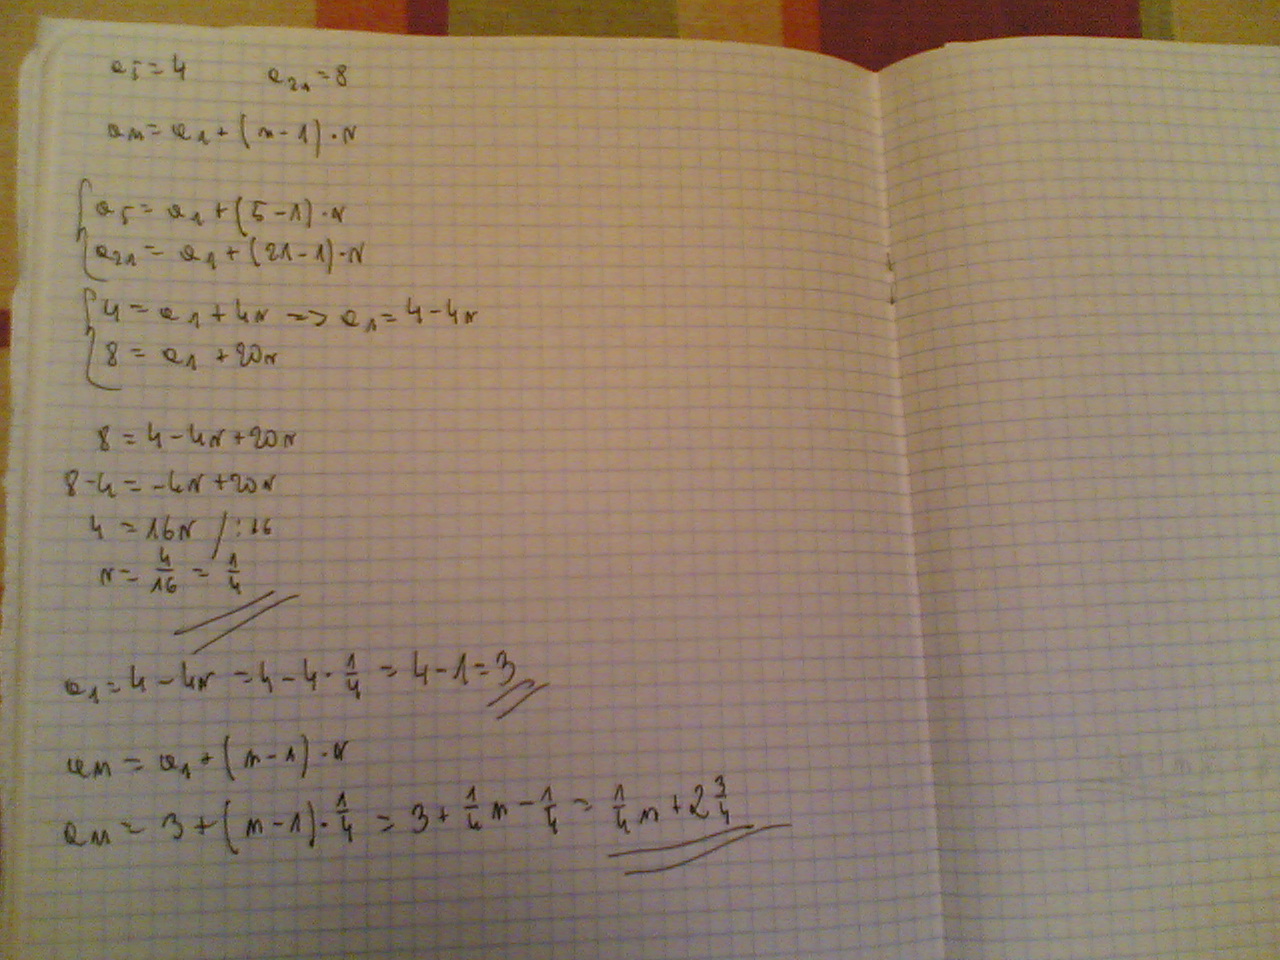 a₅ = 4 a₂₁ = 8
aₙ = a₁ + (n - 1) · r
a₅ = a₁ + (5 - 1) · r
a₂₁ = a₁ + (21 - 1) · r
4 = a₁ + 4r => a₁ = 4 - 4r
8 = a₁ + 20r
8 = 4 - 4r + 20r
8 - 4 = -4r + 20r
4 = 16r / : 16
r = 4/16 = 1/4
a₁ = 4 - 4r = 4 - 4 · 1/4 = 4 - 1 = 3
aₙ = a₁ + (n - 1) · r
aₙ = 3 + (n - 1) · 1/4 = 3 + 1/4 n - 1/4 = 1/4 n + 2 3/4